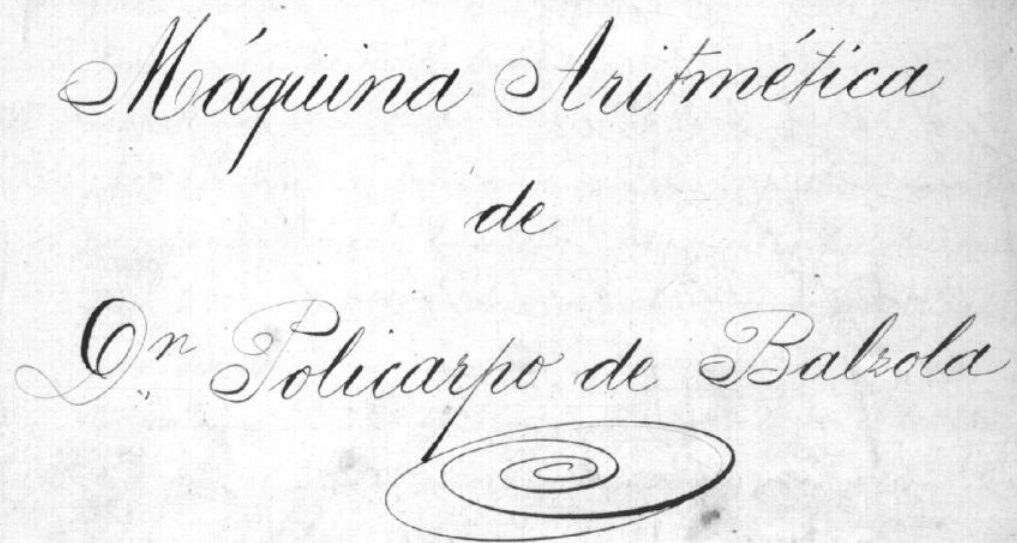 Máquina Aritmética
de
Dn. Policarpo de Balzola